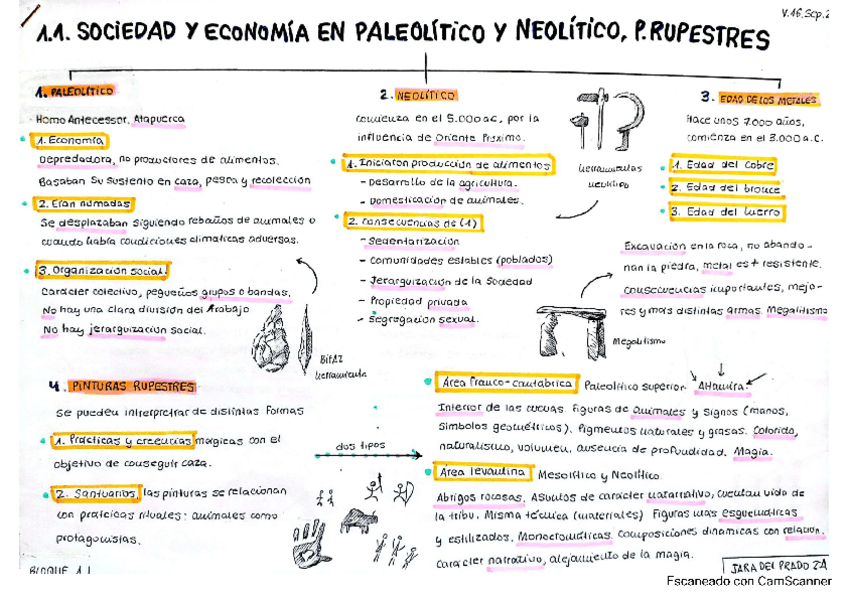 V.16, Sep. 2
1.1. SOCIEDAD Y ECONOMÍA EN PALEOLÍTICO Y NEOLÍTICO, P. RUPESTRES
1. PALEOLÍTICO
Homo Antecessor, Atapuerca
1. Economía
Depredadora, no productores de alimentos.
Basaban su sustento en caza, pesca y recolección
2. Eran nómadas
Se desplazaban siguiendo rebaños de animales o
cuando había condiciones climáticas adversas.
3. Organización social.
Carácter colectivo, pequeños grupos o bandas.
No hay una clara división del trabajo
No hay jerarquización social.
Bifaz
herramienta
2. NEOLÍTICO
Comienza en el 5.000 a.c, por la
influencia de Oriente Próximo.
1. Iniciaron producción de alimentos
- Desarrollo de la agricultura.
- Domesticación de animales.
2. Consecuencias de (1)
- Sedentarización
- Comunidades estables (poblados)
- Jerarquización de la Sociedad
- Propiedad privada
- Segregación sexual.
herramientas
neolítico
3. EDAD DE LOS METALES
Hace unos 7.000 años,
comienza en el 3.000 a.c.
1. Edad del cobre
2. Edad del bronce
3. Edad del hierro
Excavación en la roca, no abando-
nan la piedra, metal es + resistente.
consecuencias importantes, mejo-
res y más distintas armas. Megalitismo
Megalitismo
4. PINTURAS RUPESTRES
Se pueden interpretar de distintas formas
1. Prácticas y creencias mágicas con el
objetivo de conseguir caza.
2. Santuarios, las pinturas se relacionan
con prácticas rituales: animales como
protagonistas.
dos tipos
Área franco-cantábrica Paleolítico superior. Altamira.
Interior de las cuevas. Figuras de animales y signos (manos,
símbolos geométricos). Pigmentos naturales y grasas. Colorido,
naturalismo, volumen, ausencia de profundidad. Magia.
Área levantina Mesolítico y Neolítico.
Abrigos rocosas. Asuntos de carácter narrativo, cuentan vida de
la tribu. Misma técnica (materiales) Figuras más esquemáticas
y estilizados. Monocromáticas. Composiciones dinámicas con relación.
Carácter narrativo, alejamiento de la magia.
BLOQUE 1.1
JARA DEL PRADO 2A
Escaneado con CamScanner